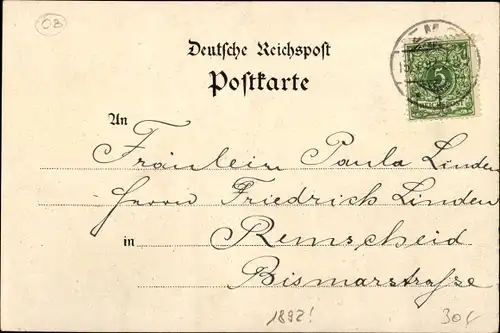 OB
Deutsche Reichspost
Postkarte
5
An
Fräulein Paula Linden
Herrn Friedrich Linden
in Remscheid
Bismarstraße
1892!
30€